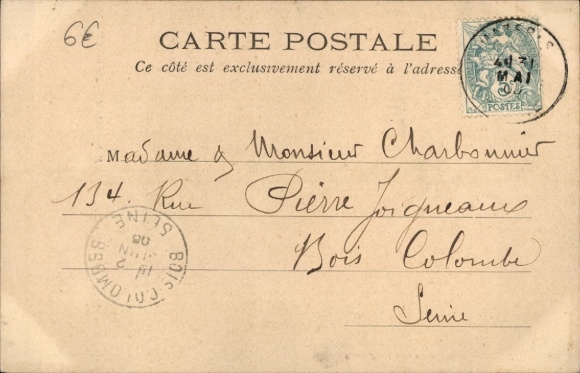 6€
CARTE POSTALE
Ce côté est exclusivement réservé à l'adresse
POSTES
31
MAI
Madame & Monsieur Charbonnier
134. Rue Pierre Joigneaux
Bois Colombe
Seine
BOIS-COLOMBES
SEINE
JUIN